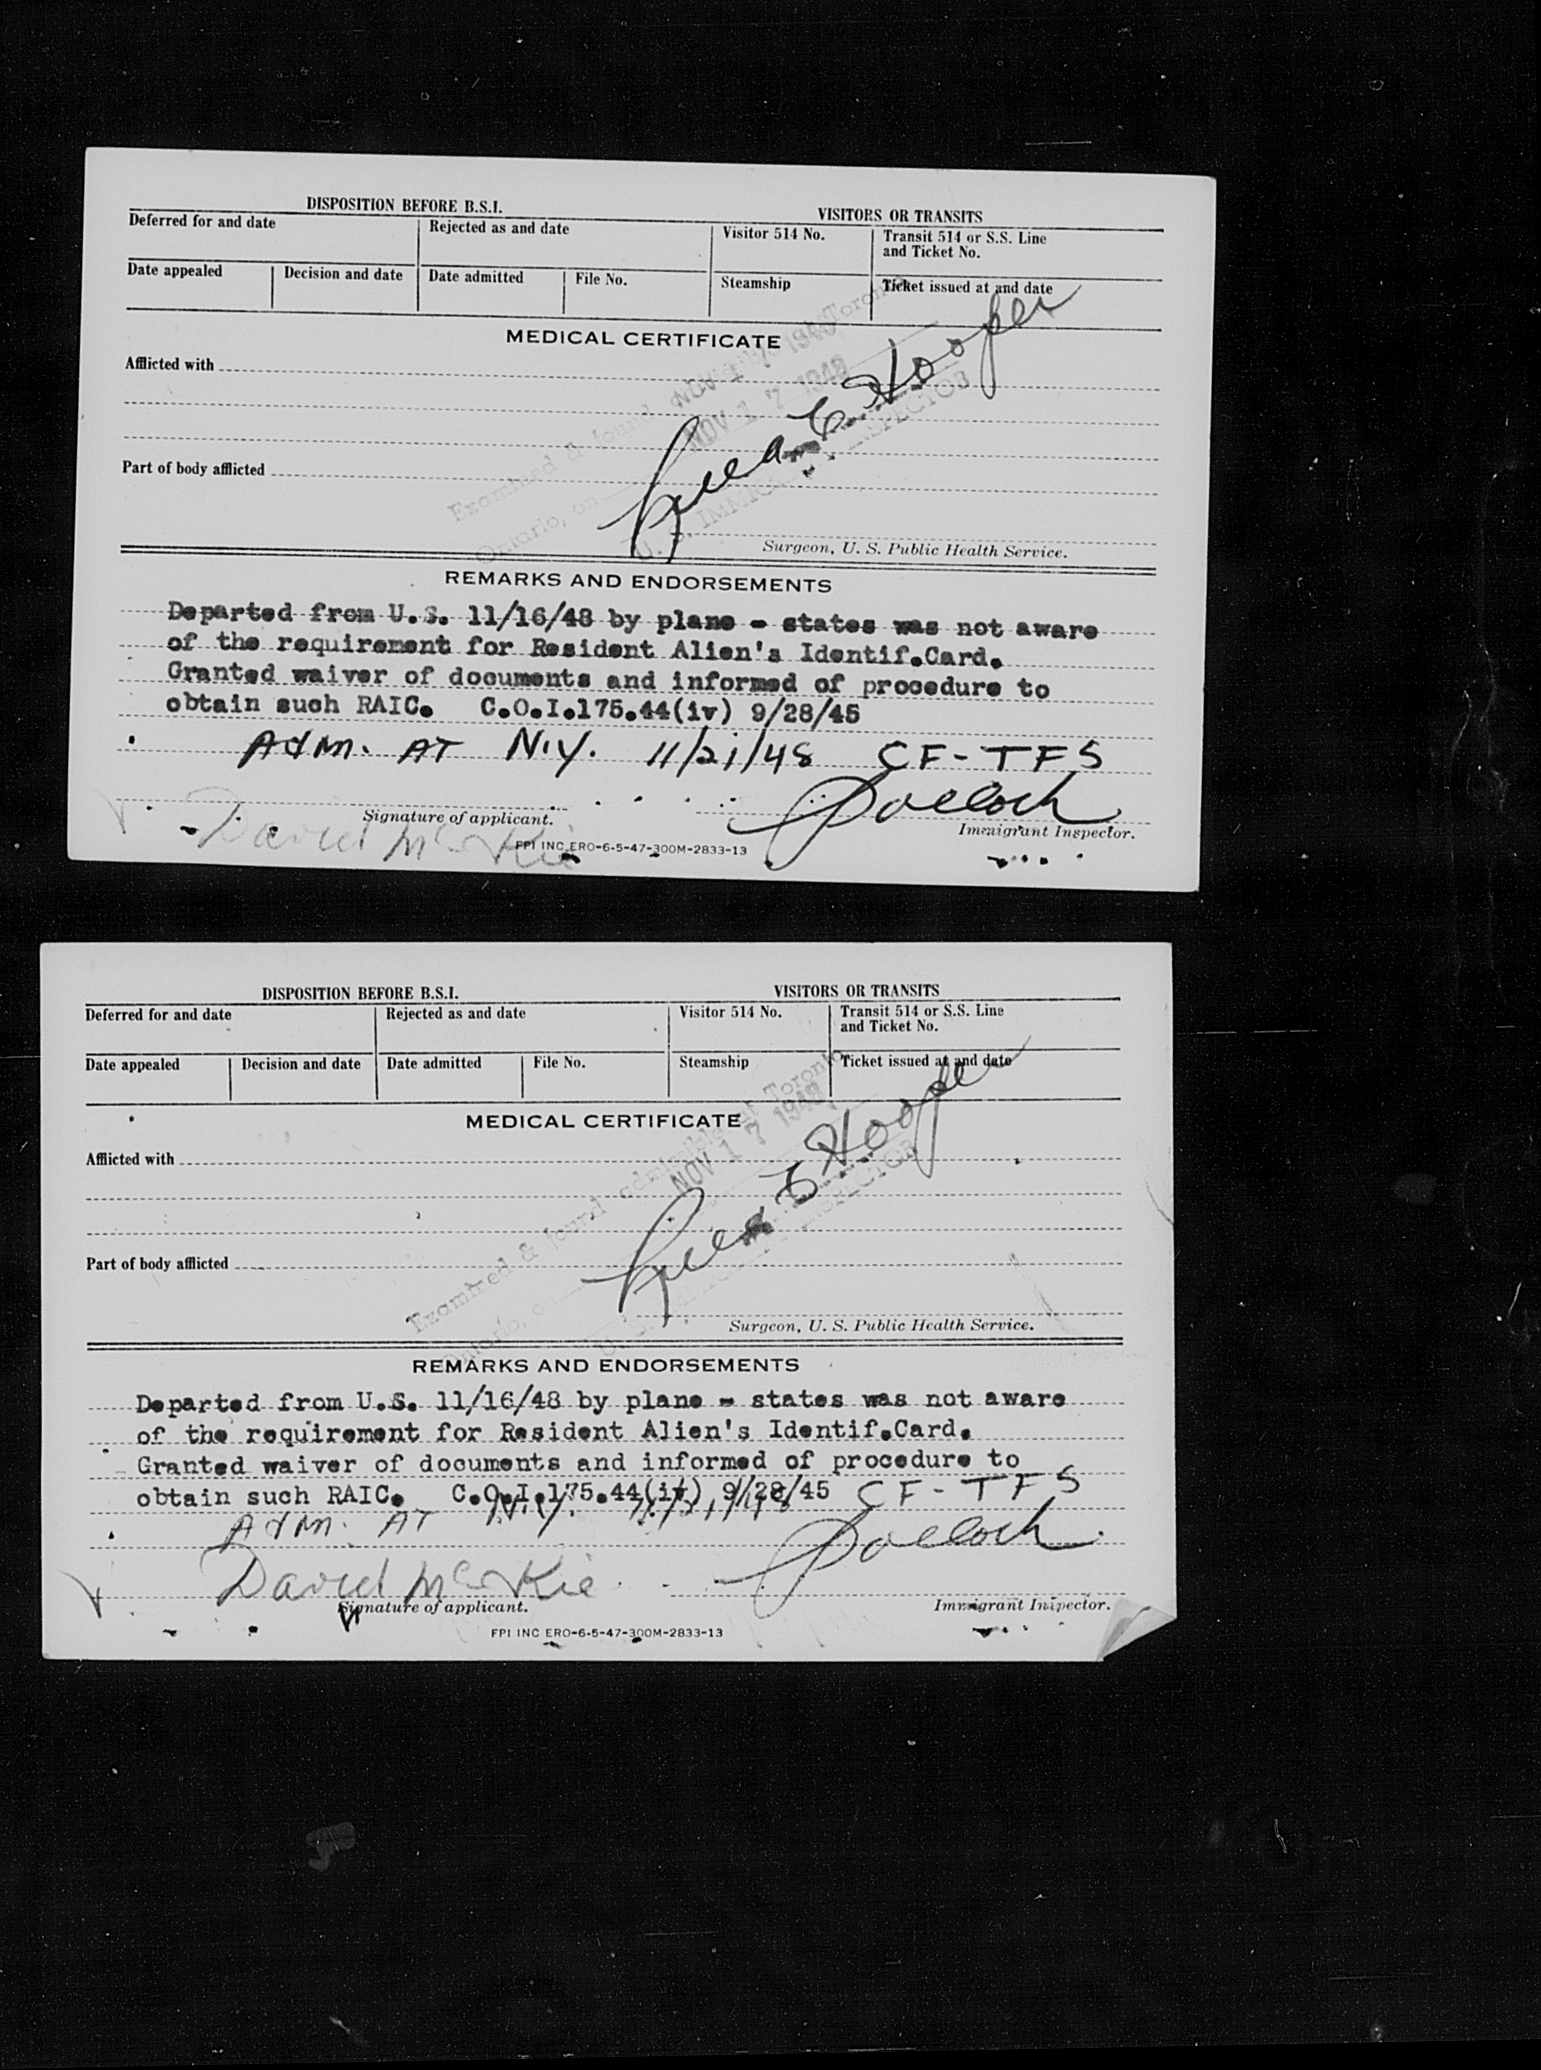 DISPOSITION BEFORE B.S.I. VISITORS OR TRANSITS
Deferred for and date Rejected as and date Visitor 514 No. Transit 514 or S.S. Line
and Ticket No.
Date appealed Decision and date Date admitted File No. Steamship Ticket issued at and date
MEDICAL CERTIFICATE
Afflicted with
Part of body afflicted
Examined & found Toronto
Ontario, on NOV 17 1948
NOV 17 1948
E Hooper
U. S. IMMIGRANT INSPECTOR
Surgeon, U. S. Public Health Service.
REMARKS AND ENDORSEMENTS
Departed from U.S. 11/16/48 by plane - states was not aware
of the requirement for Resident Alien's Identif.Card.
Granted waiver of documents and informed of procedure to
obtain such RAIC. C.O.I.175.44(iv) 9/28/45
ADM. AT N.Y. 11/21/48 CF-TFS
David McKie
Signature of applicant. Immigrant Inspector.
FPI INC ERO-6-5-47-300M-2833-13
DISPOSITION BEFORE B.S.I. VISITORS OR TRANSITS
Deferred for and date Rejected as and date Visitor 514 No. Transit 514 or S.S. Line
and Ticket No.
Date appealed Decision and date Date admitted File No. Steamship Ticket issued at and date
MEDICAL CERTIFICATE
Afflicted with
Part of body afflicted
Examined & found admissible at Toronto
Ontario, on NOV 17 1948
E Hooper
U. S. IMMIGRANT INSPECTOR
Surgeon, U. S. Public Health Service.
REMARKS AND ENDORSEMENTS
Departed from U.S. 11/16/48 by plane - states was not aware
of the requirement for Resident Alien's Identif.Card.
Granted waiver of documents and informed of procedure to
obtain such RAIC. C.O.I.175.44(iv) 9/28/45 CF-TFS
ADM. AT N.Y. 11/21/48
David McKie
Signature of applicant. Immigrant Inspector.
FPI INC ERO-6-5-47-300M-2833-13